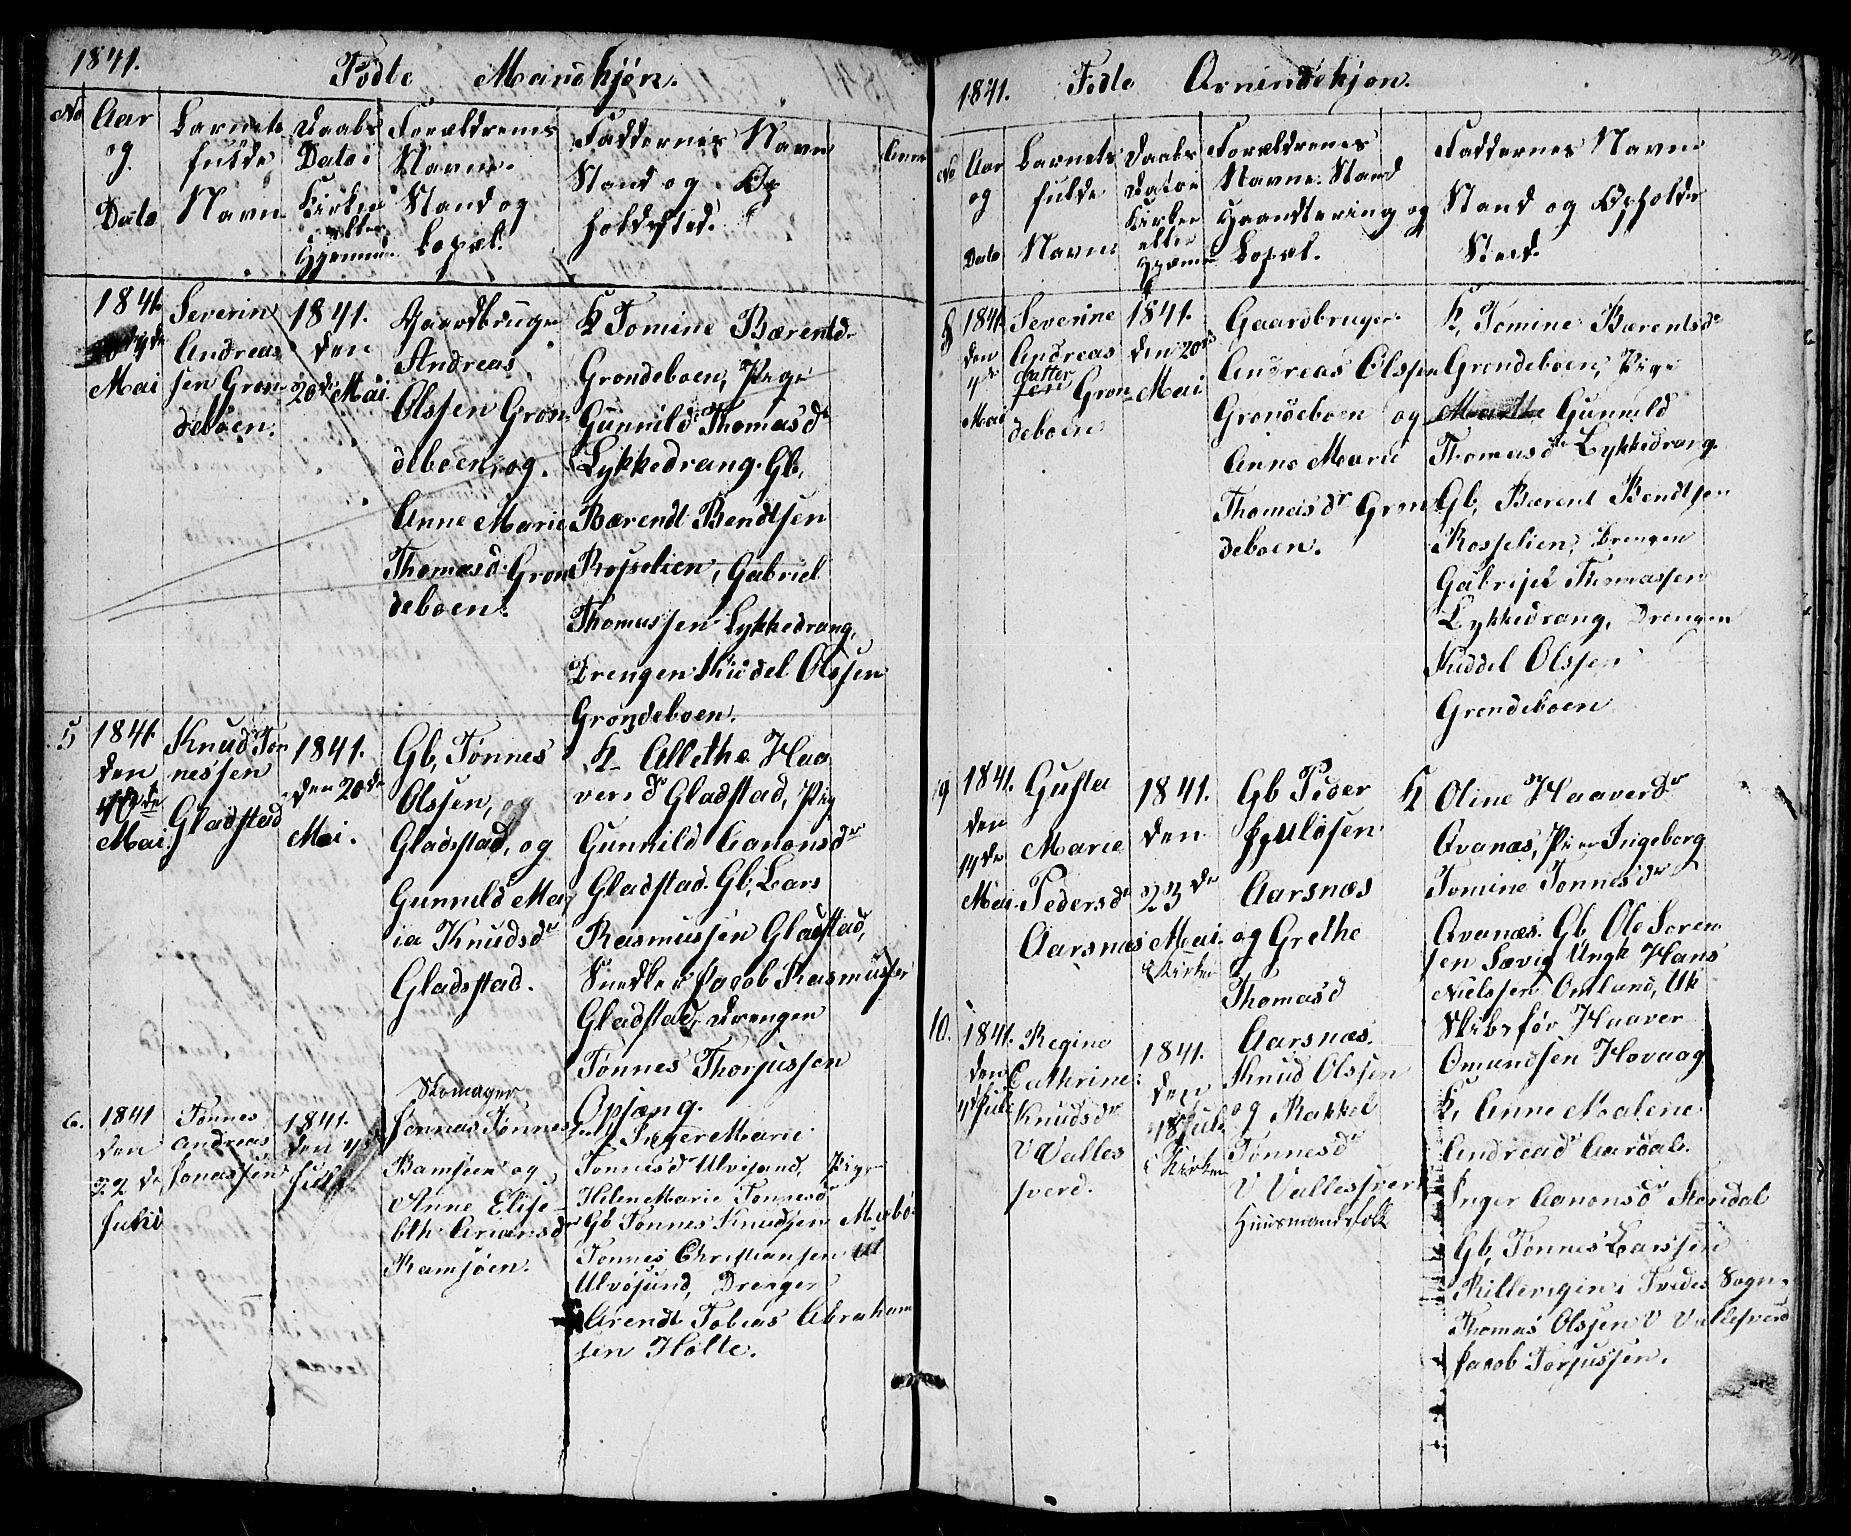 1841.
Födte Mandkjön.
No
Aar
og
Dato
Barnets
fulde
Navn
Daabs
Dato i
Kirken
eller
Hjemme
Forældrenes
Navne.
Stand og
Bopæl.
Faddernes Navne
Stand og Op
holdssted.
Anm
1841
Mai
Severin
Andreas
sen Gron
deboen.
1841.
den
20de Mai
Gaardbruger
Andreas
Olssen Gron
deboen, og
Anne Marie
Thomasd. Gron
deboen.
K Tomine Bærentsdr
Grondeboen, Pige
Gunnild Thomasdr
Lykkedrang. Gb,
Bærendt Bendtsen
Rosselien, Gabriel
Thomassen Lykkedrang,
Drengen Knudel Olssen
Grondeboen.
5
1841
den
10de
Mai.
Knud Ton
nessen
Gladstad
1841.
den 20de
Mai.
Gb, Tønnes
Olssen, og
Gladstad, og
Gunnild Ma
ia Knudsdr
Gladstad.
K Allethe Haa
versdr Gladstad, Pig
Gunnild Aanonsdr
Gladstad. Gb, Lars
Rasmussen Gladstad,
Snedker Jacob Rasmussen
Gladstad, Drengen
Tønnes Thorjussen
Opsang.
6.
1841
den
22de
Juni
Tønnes
Andreas
Jonassen
1841.
den 4de
Juli
Skomager
Jonnas Tønnes
Ramsøen og
Anne Elise
bth Ariansdr
Ramsøen.
Inger Marie
Tønnesdr Ulvøsund, Pige
Helene Marie Tønnesdr
Gb Tønnes Knudsen Mæbø
Tønnes Christiansen Ul
Ulvøsund, Drengen
Arendt Tobias Abraham
sen Holte.
1841. Födte Qvindekjøn.
No
Aar
og
Dato
Barnets
fulde
Navn
Daabs
Dato i
Kirken
eller
Hjemme
Forældrenes
Navne. Stand
Haandtering og
Bopæl.
Faddernes Navne
Stand og Opholds
Sted.
8
1841
den
4de
Mai
Severine
Andreas
datter
sen Gron
deboen
1841.
den 20de
Mai
Gaardbruger
Andreas Olssen
Grondeboen og
Anne Marie
Thomasdr Gron
deboen.
K, Tomine Bærentsdr
Grondeboen, Pige
Marthe Gunnild
Thomasdr Lykkedrang.
Gb, Bærent Bendtsen
Rosselien, Drengen
Gabrijel Thomassen
Lykkedrang, Drengen
Knddel Olssen
Grondeboen
9
1841.
den
14de
Mai
Gusta
Marie
Pedersdr
Aarsnæs
1841.
den
23de
Mai
i Kirken
Gb Peder
Jgulssen
Aarsnæs
og Grethe
Thomasd
Aarsnæs.
K Oline Haaversdr
Qvanæs, Pigen Ingeborg
Tomine Tønnesdr
Qvanæs. Gb, Ole Soren
sen Sævig Ungk Hans
Nielssen Omlund, Uk
Skibsfør Haaver
Omundsen Hovaag
10.
1841.
den
4de Juli
Regine
Cathrine
Knudsdr
V Valles
sverd.
1841.
den
18 Juli
i Kirken
Knud Olssen
og Rakkel
Tønnesdr
V Vallessverd
Huusmandsfolk
K, Anne Malene
Andreasdr Aardale.
Inger Aanonsdr Stendal
Gb, Tønnes Larssen
Killevigen i Tredes Sogn,
Thomas Olssen V Vallesverd
Jacob Torjussen.